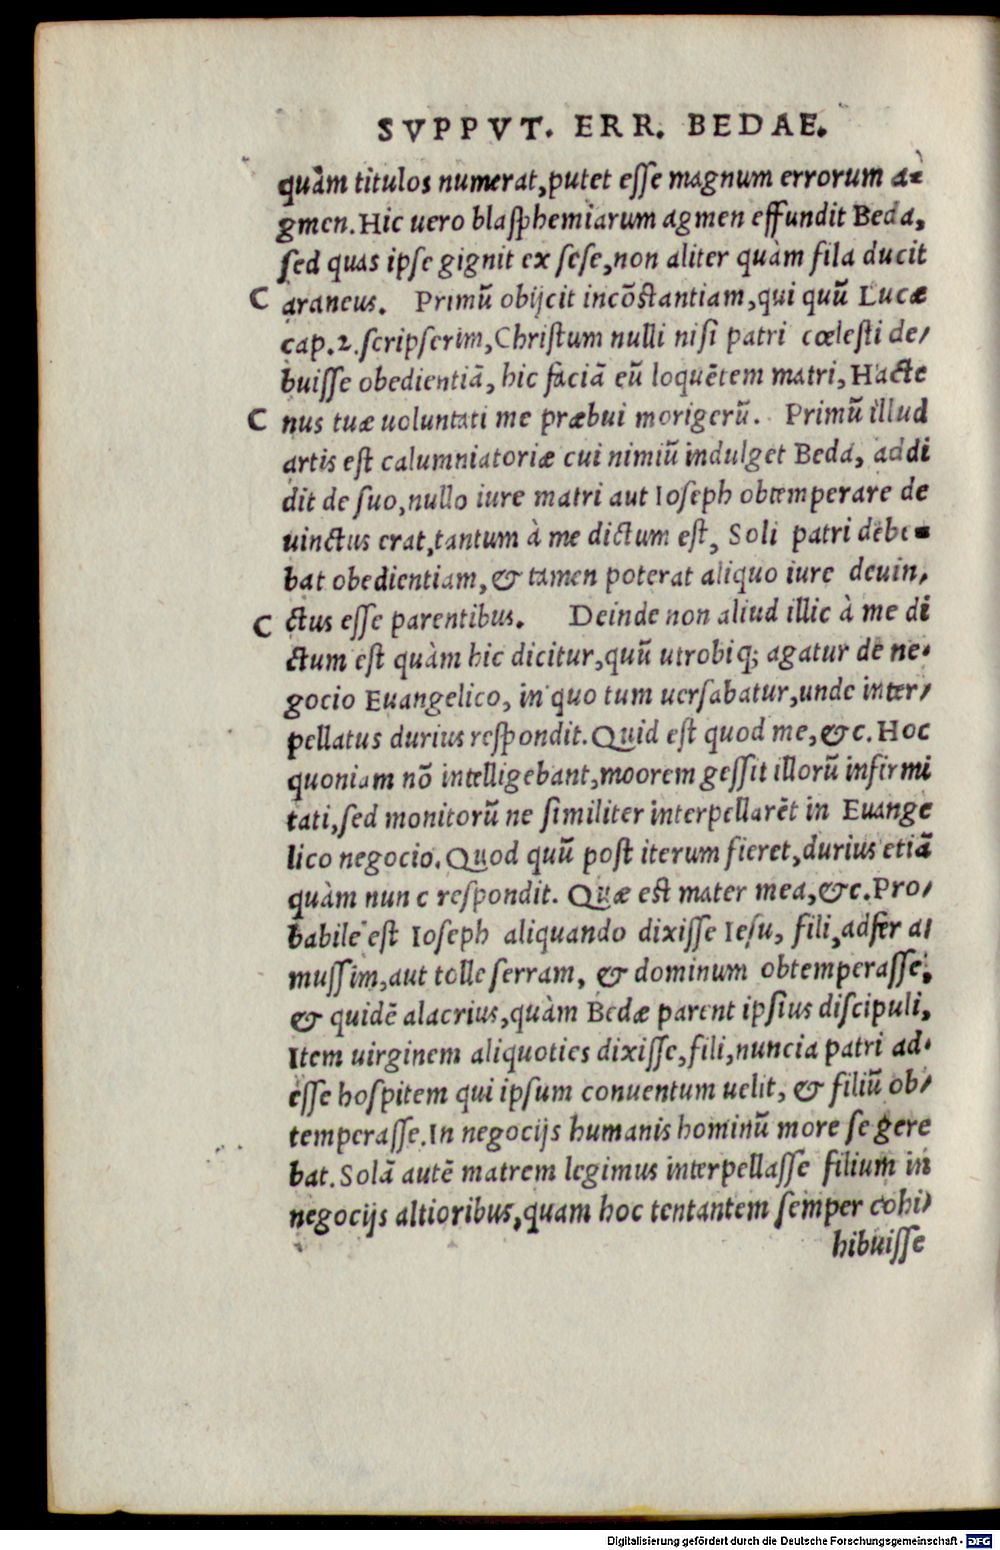 SVPPVT. ERR. BEDAE.
quàm titulos numerat, putet esse magnum errorum a-
gmen. Hic uero blasphemiarum agmen effundit Beda,
sed quas ipse gignit ex sese, non aliter quàm fila ducit
C araneus. Primũ obijcit incõstantiam, qui quũ Lucæ
cap. 2. scripserim, Christum nulli nisi patri cœlesti de/
buisse obedientiã, hic faciã eũ loquẽtem matri, Hacte
C nus tuæ uoluntati me præbui morigerũ. Primũ illud
artis est calumniatoriæ cui nimiũ indulget Beda, addi
dit de suo, nullo iure matri aut Ioseph obtemperare de
uinctus erat, tantum à me dictum est, Soli patri debe-
bat obedientiam, & tamen poterat aliquo iure deuin/
C ctus esse parentibus. Deinde non aliud illic à me di
ctum est quàm hic dicitur, quũ utrobiq; agatur de ne/
gocio Euangelico, in quo tum uersabatur, unde inter/
pellatus durius respondit. Quid est quod me, &c. Hoc
quoniam nõ intelligebant, moorem gessit illorũ infirmi
tati, sed monitorũ ne similiter interpellarẽt in Euange
lico negocio. Quod quũ post iterum fieret, durius etiã
quàm nun c respondit. Quæ est mater mea, &c. Pro/
babile est Ioseph aliquando dixisse Iesu, fili, adfer a/
mussim, aut tolle serram, & dominum obtemperasse,
& quidẽ alacrius, quàm Bedæ parent ipsius discipuli,
Item uirginem aliquoties dixisse, fili, nuncia patri ad/
esse hospitem qui ipsum conuentum uelit, & filiũ ob/
temperasse. In negocijs humanis hominũ more se gere
bat. Solã autẽ matrem legimus interpellasse filium in
negocijs altioribus, quam hoc tentantem semper cohi/
hibuisse
Digitalisierung gefördert durch die Deutsche Forschungsgemeinschaft - DFG